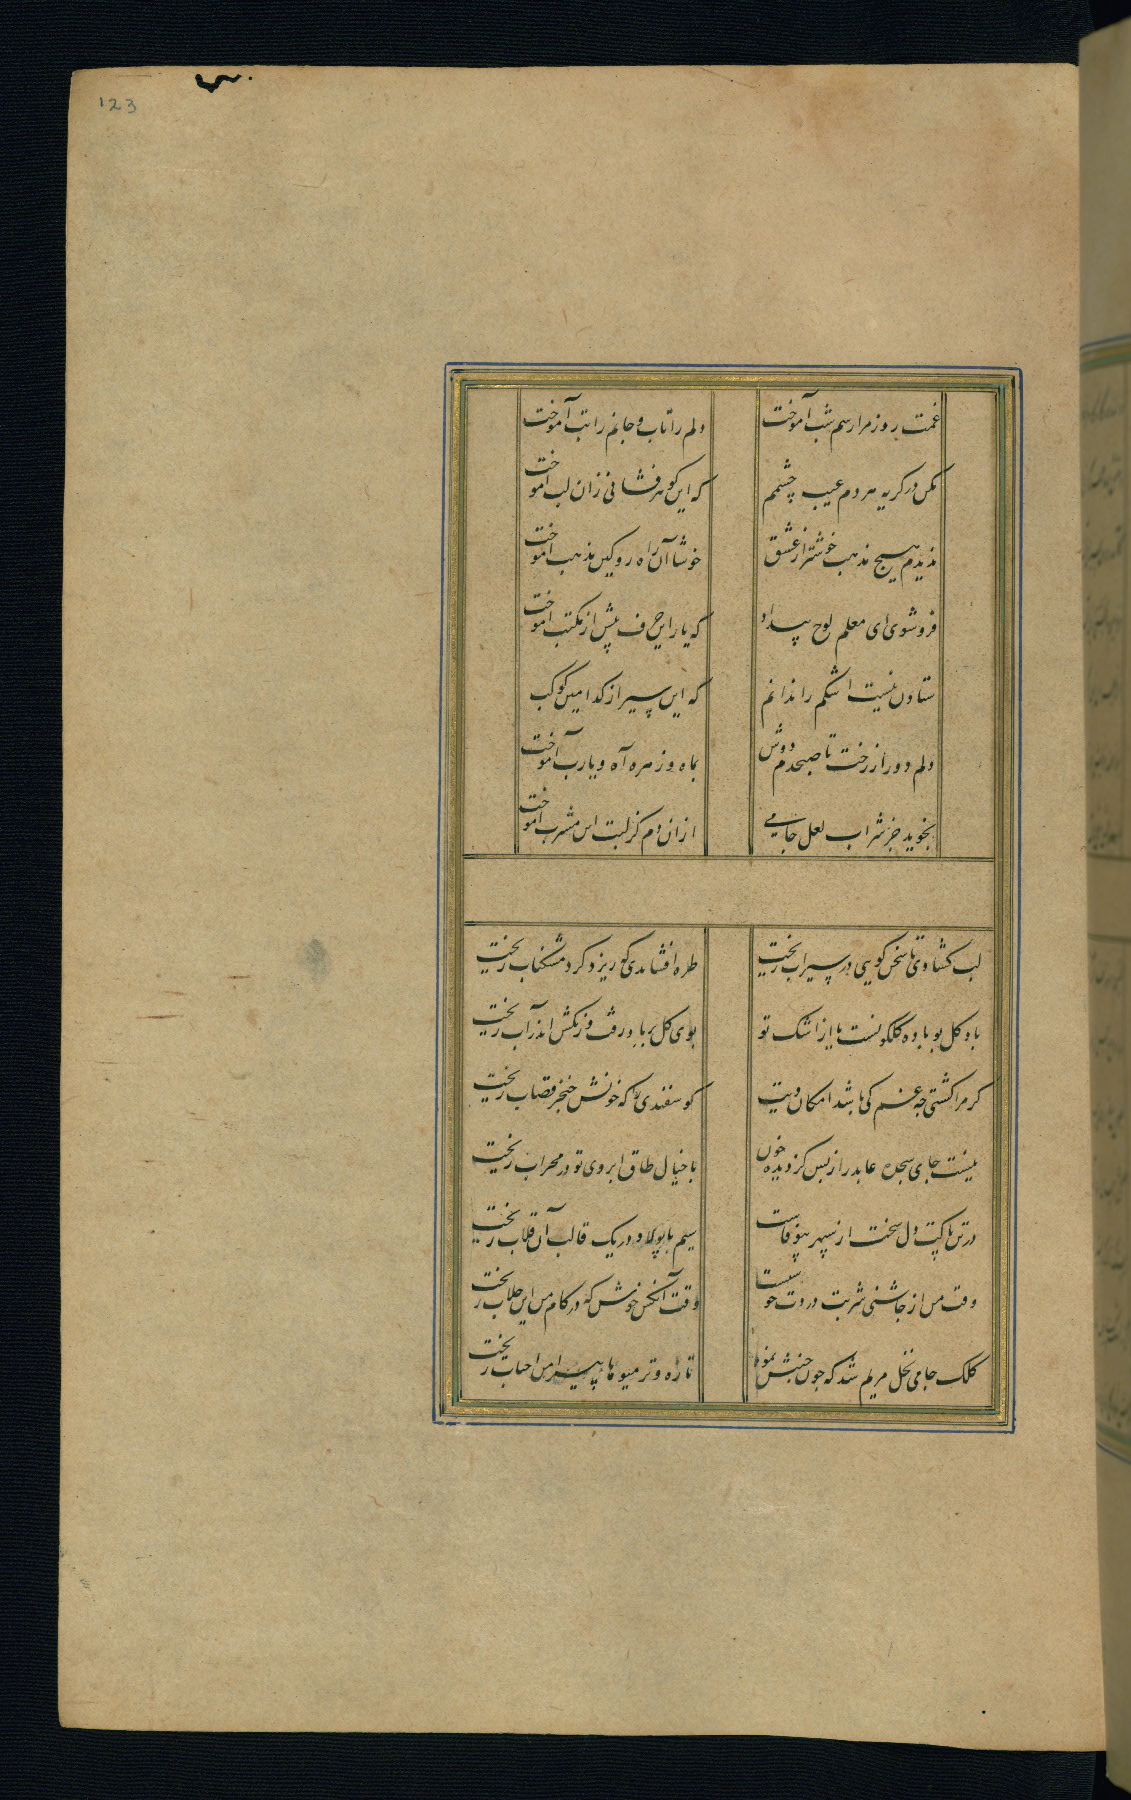 123
غمت روز مرا رسم شب آموخت دلم را تاب و جانم را تب آموخت
مکن در کریه مردم عیب چشمم که این کوهر فشانی زان لب آموخت
ندیدم هیچ مذهب خوشتر از عشق خوشا آن راه رو کین مذهب آموخت
فروشوی ای معلم لوح بیداد که یار این حرف پیش از مکتب آموخت
ستادن نیست اشکم را ندانم که این سیر از کدامین کوکب
دلم دور از رخت تا صبحدم دوش بماه و زهره آه و یارب آموخت
نخوید جز شراب لعل جامی ازان دم کز لبت این مشرب آموخت
لب کشادی تا سخن کویی در سیراب ریخت طره افشاندی که ریزد کرد مشکناب ریخت
باد کل بو یا باده کلکونست یا از اشک تو بوی کل بر باد رفت و رنکش اندر آب ریخت
کر مرا کشتی چه غم کی باشد امکان دیت کوسفندی را که خونش خنجر قصاب ریخت
نیست جای سجده عابد را ز بس کز دیده خون با خیال طاق ابروی تو در محراب ریخت
در تن پاکت دل سخت از سپهر بیوفاست سیم با پولاد در یک قالب آن قلاب ریخت
وقت من از چاشنی شربت دردت خوشست وقت آنکس خوش که در کام من این جلاب ریخت
کلک جامی نخل مریم شد که چون جنبش نمود تازه و تر میوه ها پیرامن احباب ریخت